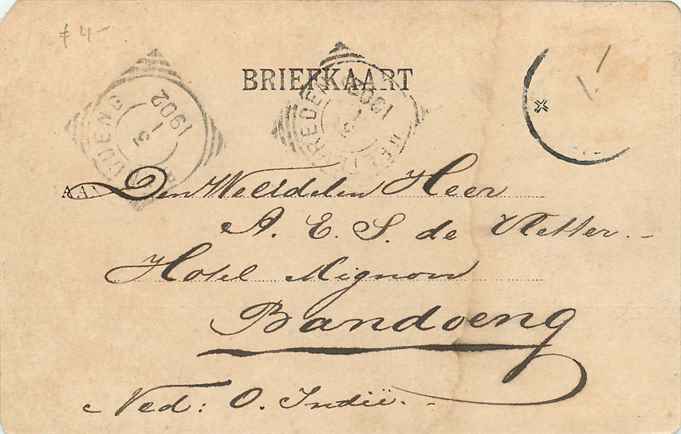 ƒ 4-
BRIEFKAART
1902
1902
Den Weledelen Heer
A. E. S. de Vletter.-
Hotel Mignon
Bandoeng
Ned: O. Indië.-